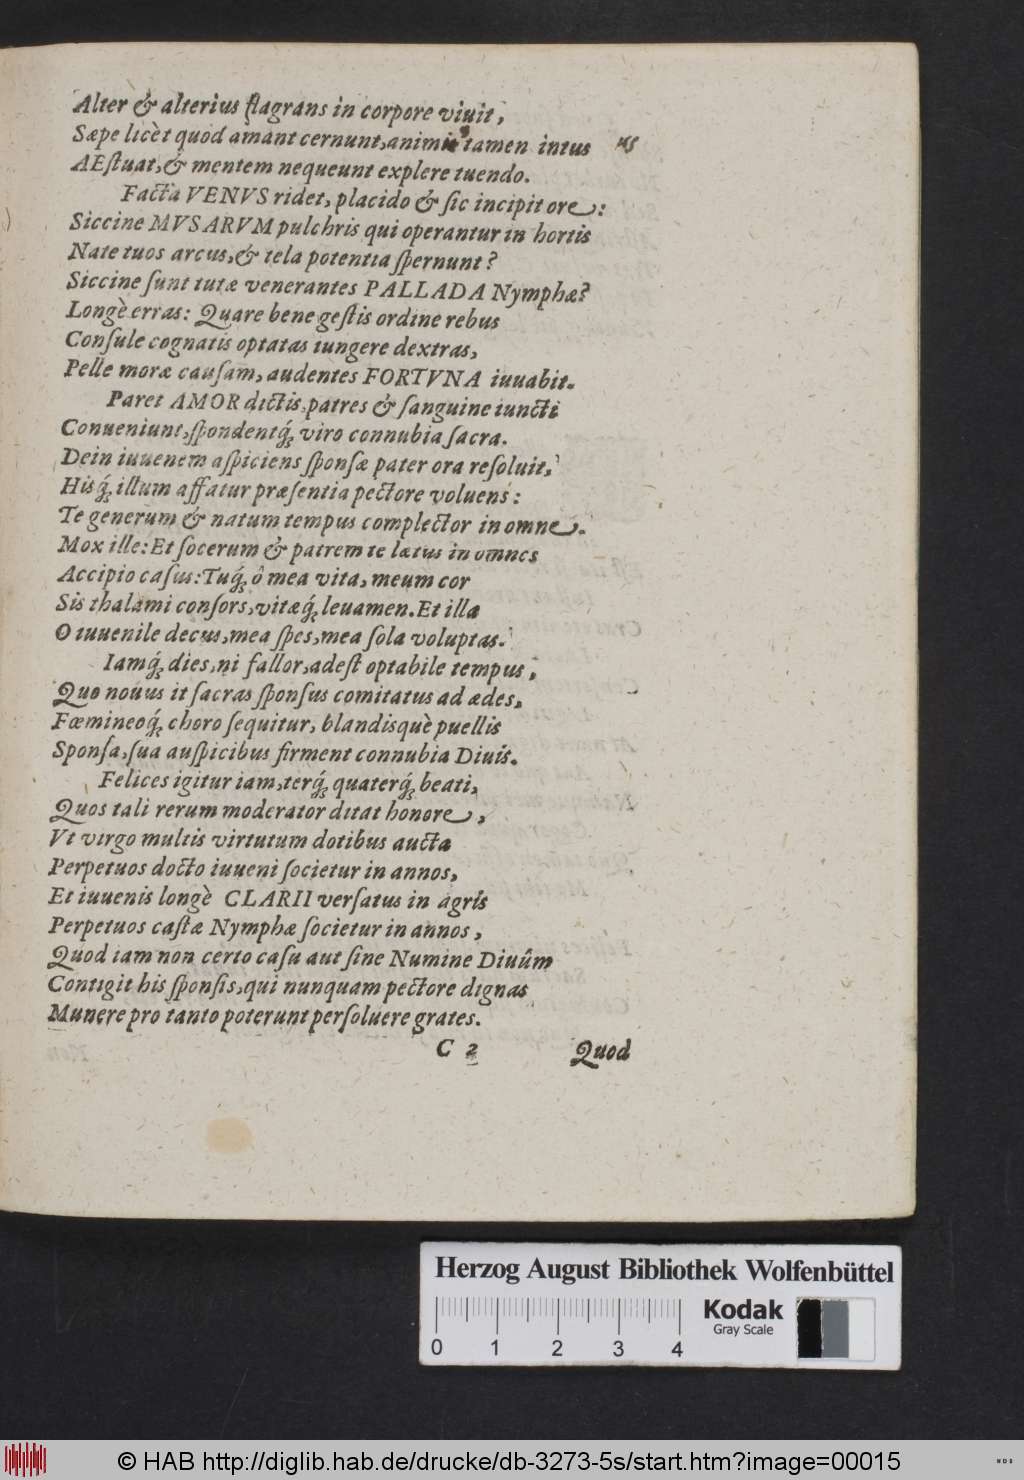 Alter & alterius flagrans in corpore viuit,
Sæpe licèt quod amant cernunt, animus tamen intus us
AEſtuat, & mentem nequeunt explere tuendo.
Facta VENVS ridet, placido & ſic incipit ore:
Siccine MVSARVM pulchris qui operantur in hortis
Nate tuos arcus, & tela potentia ſpernunt?
Siccine ſunt tutæ venerantes PALLADA Nymphæ?
Longè erras: Quare bene geſtis ordine rebus
Conſule cognatis optatas iungere dextras,
Pelle moræ cauſam, audentes FORTVNA iuuabit.
Paret AMOR dictis, patres & ſanguine iuncti
Conueniunt, ſpondentq́; viro connubia ſacra.
Dein iuuenem aſpiciens ſponſæ pater ora reſoluit,
Hisq́; illum affatur præſentia pectore voluens:
Te generum & natum tempus complector in omne.
Mox ille: Et ſocerum & patrem te lætus in omnes
Accipio caſus: Tuq́; ô mea vita, meum cor
Sis thalami conſors, vitæq́; leuamen. Et illa
O iuuenile decus, mea ſpes, mea ſola voluptas.
Iamq́; dies, ni fallor, adeſt optabile tempus,
Quo nouus it ſacras ſponſus comitatus ad ædes,
Fœmineoq́; choro ſequitur, blandisquè puellis
Sponſa, ſua auſpicibus firment connubia Diuis.
Felices igitur iam, terq́; quaterq́; beati,
Quos tali rerum moderator ditat honore,
Vt virgo multis virtutum dotibus aucta
Perpetuos docto iuueni ſocietur in annos,
Et iuuenis longè CLARII verſatus in agris
Perpetuos caſtæ Nymphæ ſocietur in annos,
Quod iam non certo caſu aut ſine Numine Diuûm
Contigit his ſponſis, qui nunquam pectore dignas
Munere pro tanto poterunt perſoluere grates.
C 2 Quod
Herzog August Bibliothek Wolfenbüttel
Kodak
Gray Scale
0 1 2 3 4
© HAB http://diglib.hab.de/drucke/db-3273-5s/start.htm?image=00015